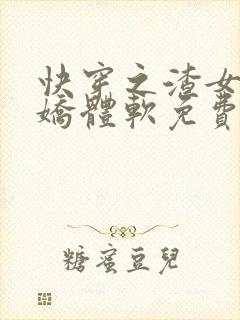 快穿之渣女
嬌體軟免費
糖蜜豆兒